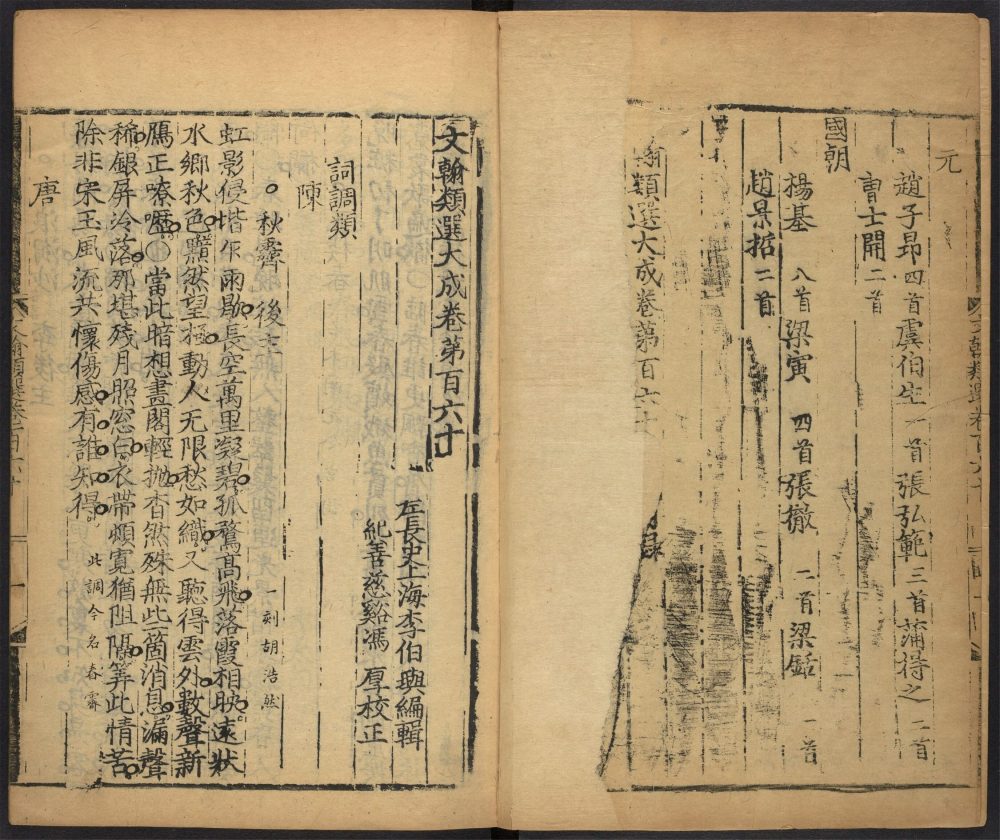 元
趙子昂四首虞伯生一首張弘範三首蒲得之二首
曹士開二首
國朝
楊基 八首梁寅 四首張徹 二首梁鋸 一首
趙景哲二首
翰類選大成卷第百六十
目錄
文翰類選大成卷第百六十
左長史上海李伯璵編輯
紀善慈谿馮厚校正
詞調類
陳
秋霽 後主 一刻胡浩然
虹影侵堦乍雨歇長空萬里凝碧孤鶩高飛落霞相映遠狀
水鄉秋色黯然望極動人无限愁如織又聽得雲外數聲新
鴈正嘹嚦當此暗想畫閣輕抛杳然殊無些箇消息漏聲
稀銀屏冷落那堪殘月照窓白衣帶頻寬猶阻隔筭此情苦
除非宋玉風流共懷傷感有誰知得 此調今名春霽
唐